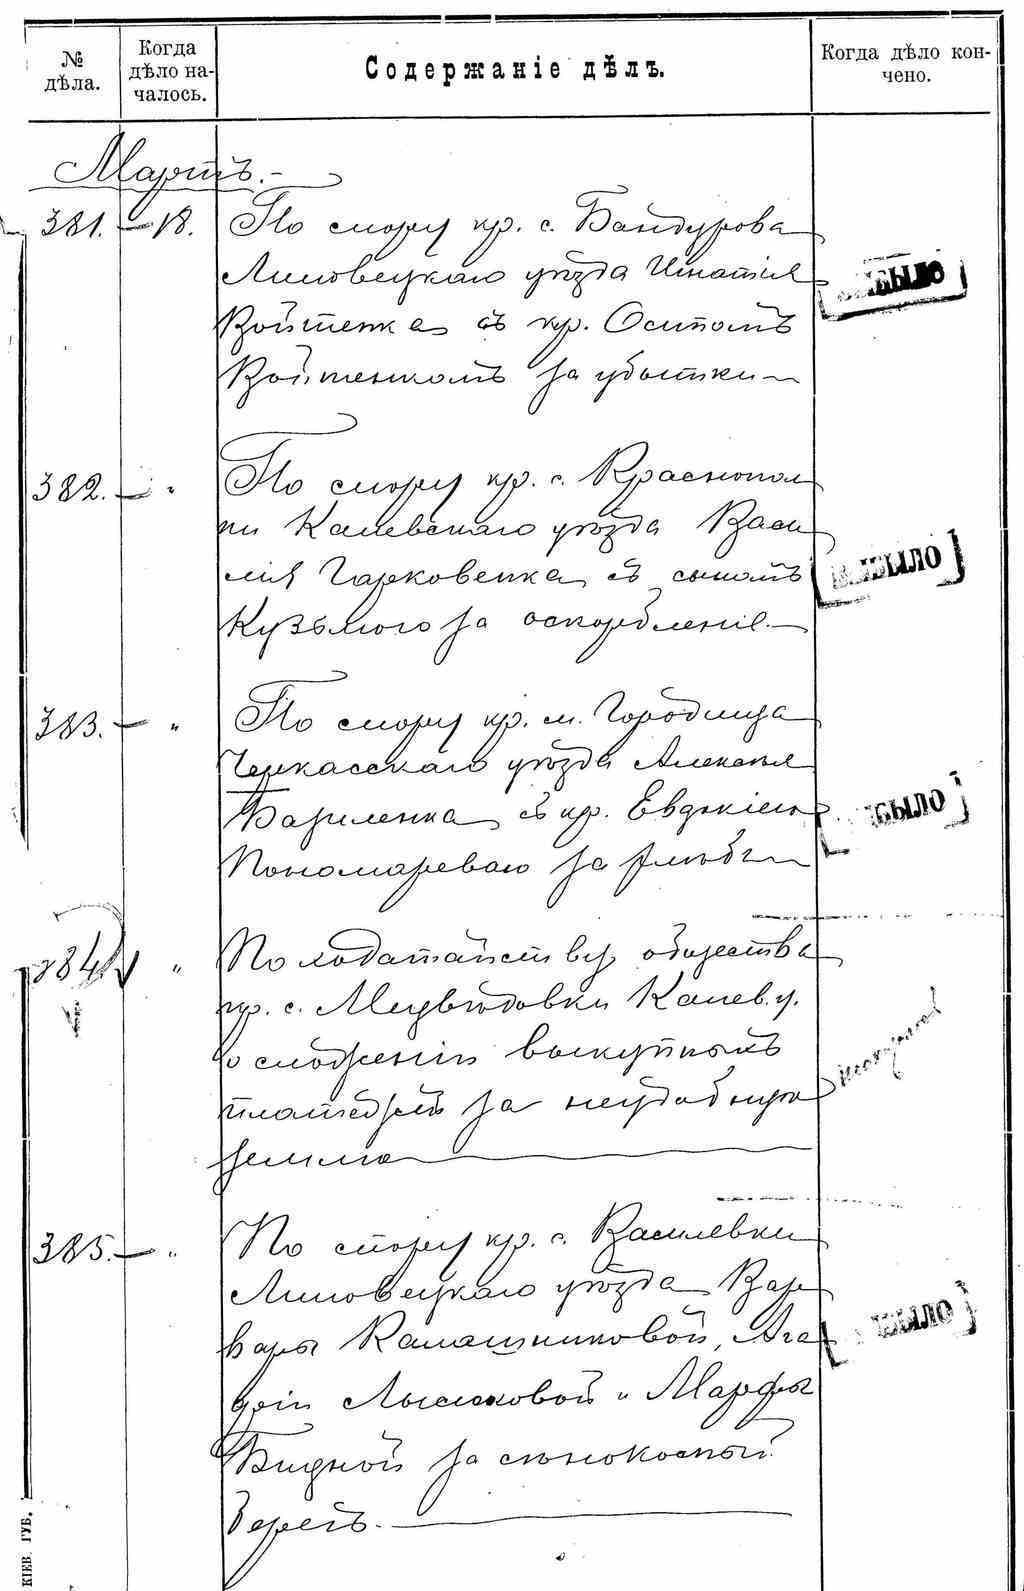 № дѣла.
Когда дѣло на-
чалось.
Содержаніе дѣлъ.
Когда дѣло кон-
чено.
Мартъ.
381. 18. По спору кр. с. Бандурова
Липовецкаго уѣзда Игнатія
Войтенка съ кр. Осипомъ
Войтенкомъ за убытки
ВЫБЫЛО
382. " По спору кр. с. Краснопол
ки Каневскаго уѣзда Васи
лія Гарковенка съ сыномъ
Кузьмою за оскорбленіе.
ВЫБЫЛО
383. " По спору кр. м. Городища
Черкасскаго уѣзда Алексѣя
Базиленка съ кр. Евдокіею
Пономаревою за
ВЫБЫЛО
384 " По ходатайству общества
кр. с. Медвѣдовки Канев. у.
о сложеніи выкупныхъ
платежей за неудобную
землю
385. " По спору кр. с. Василевки
Липовецкаго уѣзда Вар
вары Калашниковой, Ага
фіи Лысаковой и Марфы
Бидной за сѣнокосный
берегъ.
ВЫБЫЛО
КІЕВ. ГУБ.